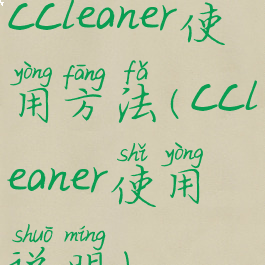 CCleaner使
yòng fāng fǎ
用方法(CCl
shǐ yòng
eaner使用
shuō míng
说明)